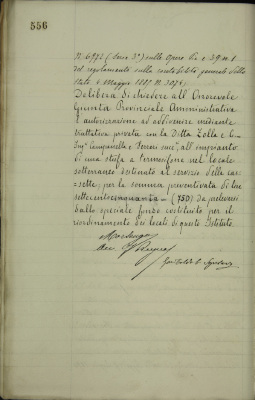 556
N. 6972 (Serie 3ª) sulle Opere Pie e 39 n. 1
del regolamento sulla contabilità generale dello
Stato 4 Maggio 1885 N. 3074;
Delibera di chiedere all'Onorevole
Giunta Provinciale Amministrativa
l'autorizzazione ad addivenire mediante
trattativa privata con la Ditta Zolla e C.
Ing.ⁱ Campanella e all'impianto
di una stufa a termosifone nel locale
sotterraneo destinato al servizio delle cas-
sette; per la somma preventivata di lire
settecentocinquanta - (750) da prelevarsi
dallo speciale fondo costituito per il
riordinamento dei locali di questo Istituto.